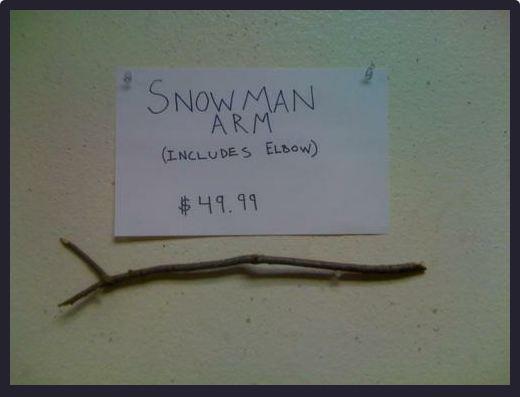 SNOWMAN
ARM
(INCLUDES ELBOW)
$49.99